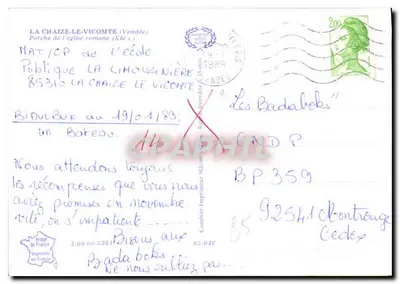 LA CHAIZE-LE-VICOMTE (Vendée)
Porche de l'église romane (XIe s.)
MAT/CP de l'école
Publique LA LIMOUZINIÈRE
85310 LA CHAIZE LE VICOMTE
BIDULBUK au 19/01/89:
UN Bateau
Nous attendons toujours
les récompenses que vous nous
aviez promises en novembre
vite, on s'impatiente ........
Bisous aux
Badaboks!
Ne nous oubliez pas......
Image de France
3.00.00.5351
85.046
1989
2,00
"Les Badaboks"
CNDP
BP 359
92541 Montrouge
Cedex